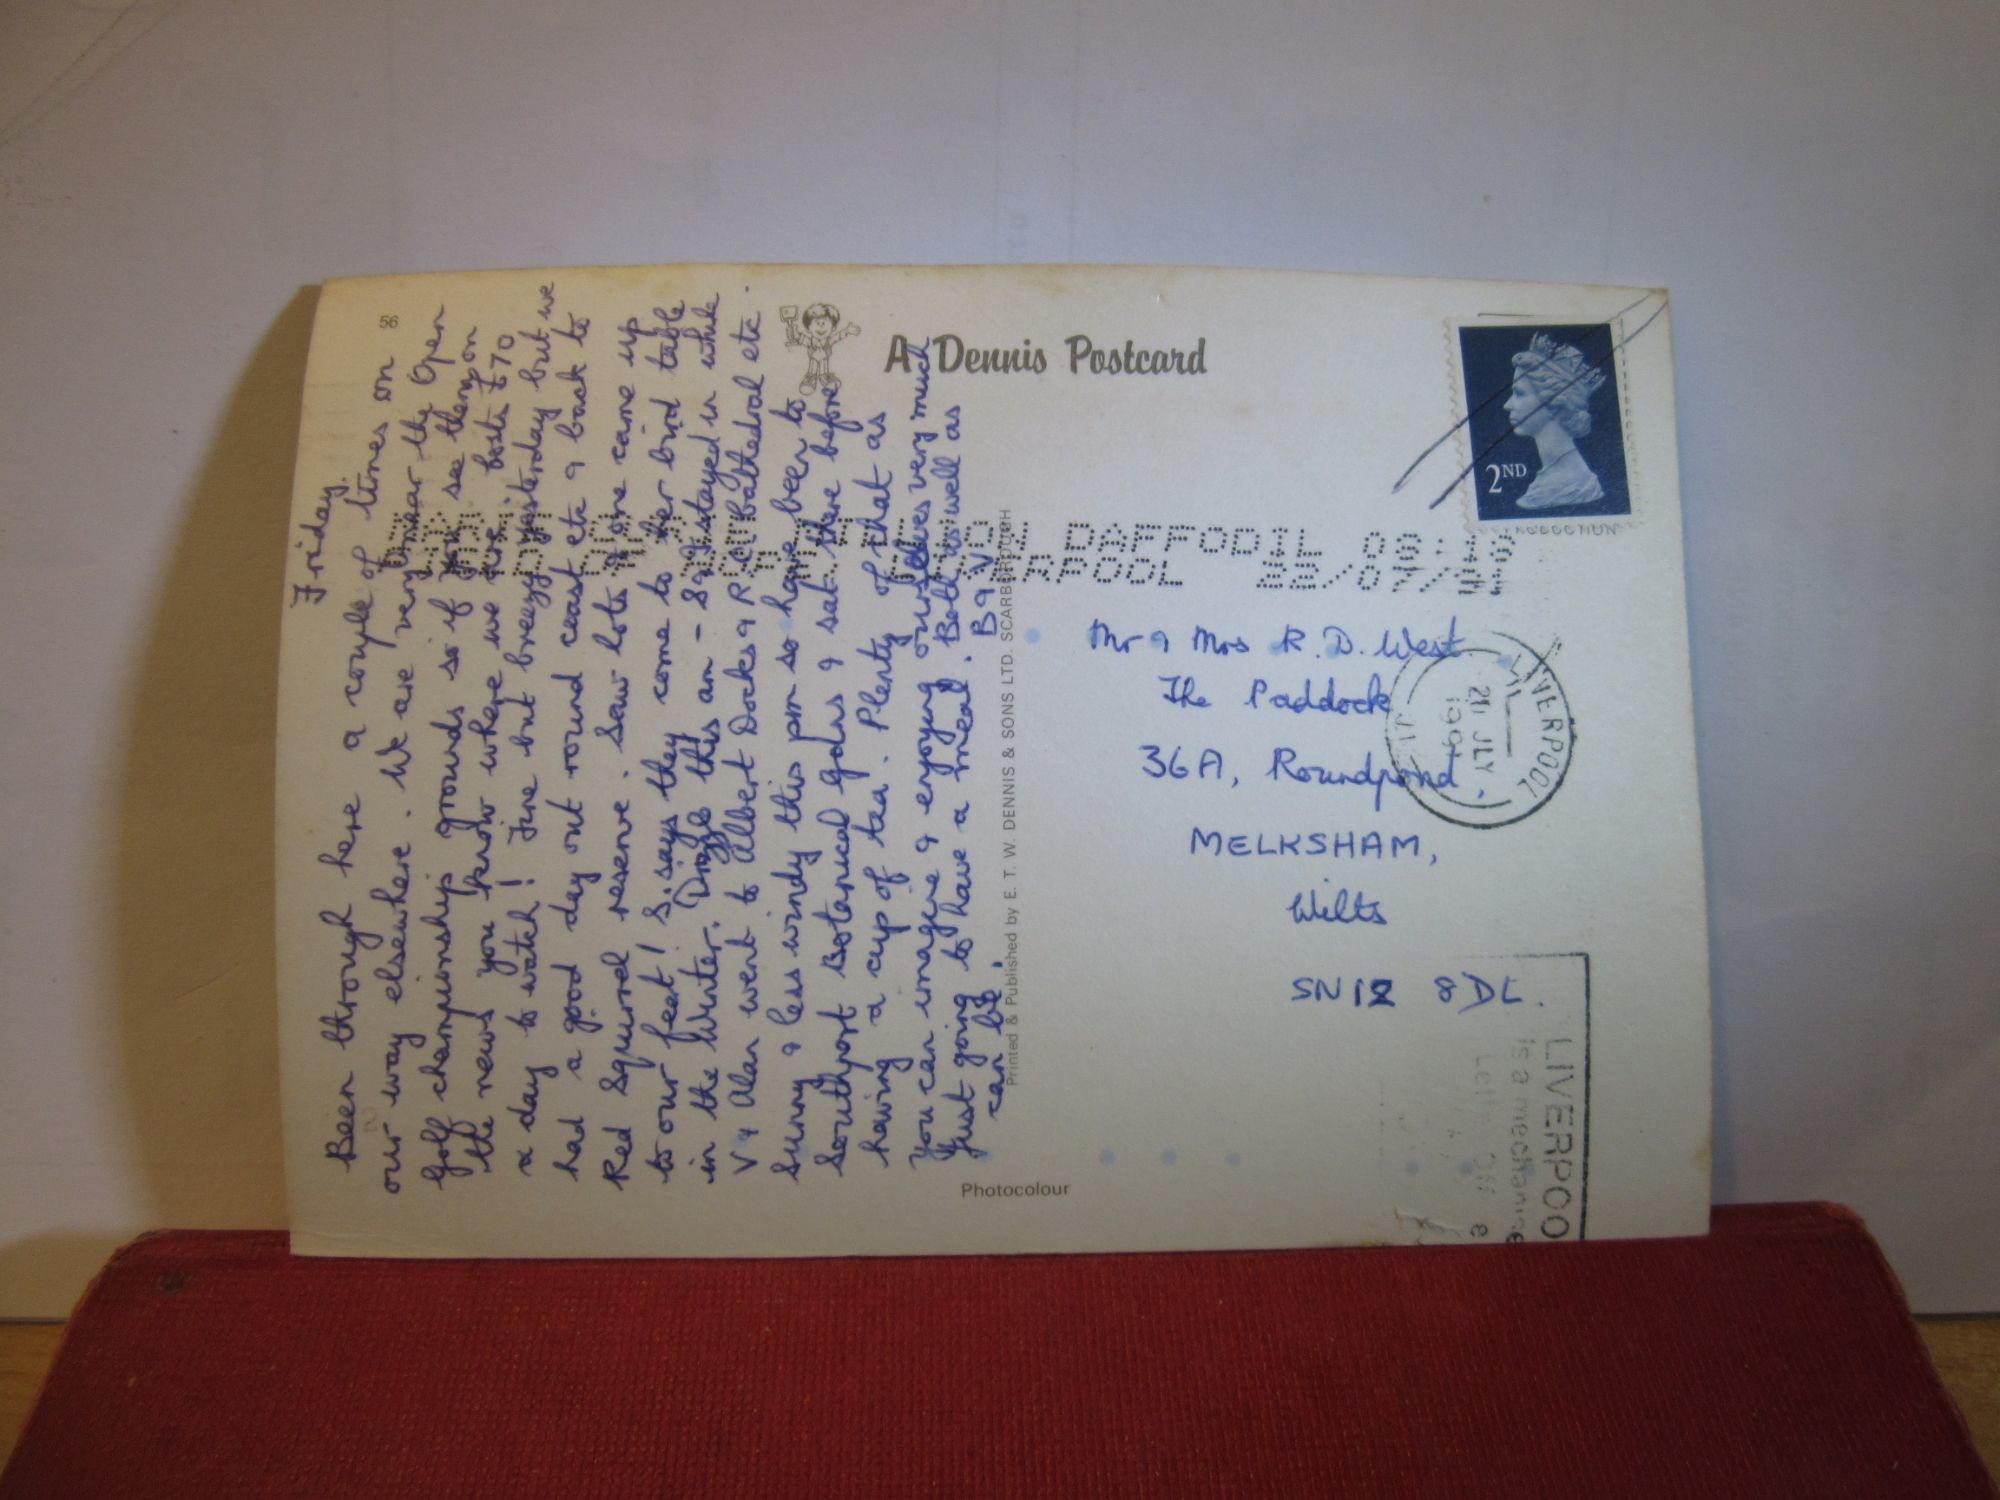 56
Friday.
Been through here a couple of times on
our way elsewhere. We are very near the Open
Golf championship grounds so if you see them on
the news you know where we are. boots £70
a day to watch! Fine but breezy yesterday but we
had a good day out round coast etc & back to
Red Squirrel reserve. Saw lots & one came up
to our feet! S. says they come to her bird table
in the Winter. Drizzle this am - S & J stayed in while
V & Alan went to Albert Docks & R.C. Cathedral etc.
Sunny & less windy this pm so have been to
Southport Botanical Gdns & sat there before
having a cup of tea. Plenty of that as
you can imagine & enjoying ourselves very much
Just going to have a meal. Both as well as
can be. B & V.
A Dennis Postcard
Printed & Published by E. T. W. DENNIS & SONS LTD. SCARBOROUGH
Photocolour
2ND
DAFFODIL
LIVERPOOL 22/07/
Mr & Mrs R. D. West
The Paddock
36A, Roundpond,
MELKSHAM,
Wilts
SN12 8DL.
LIVERPOOL
JLY
1991
LIVERPOO
is a mechanise